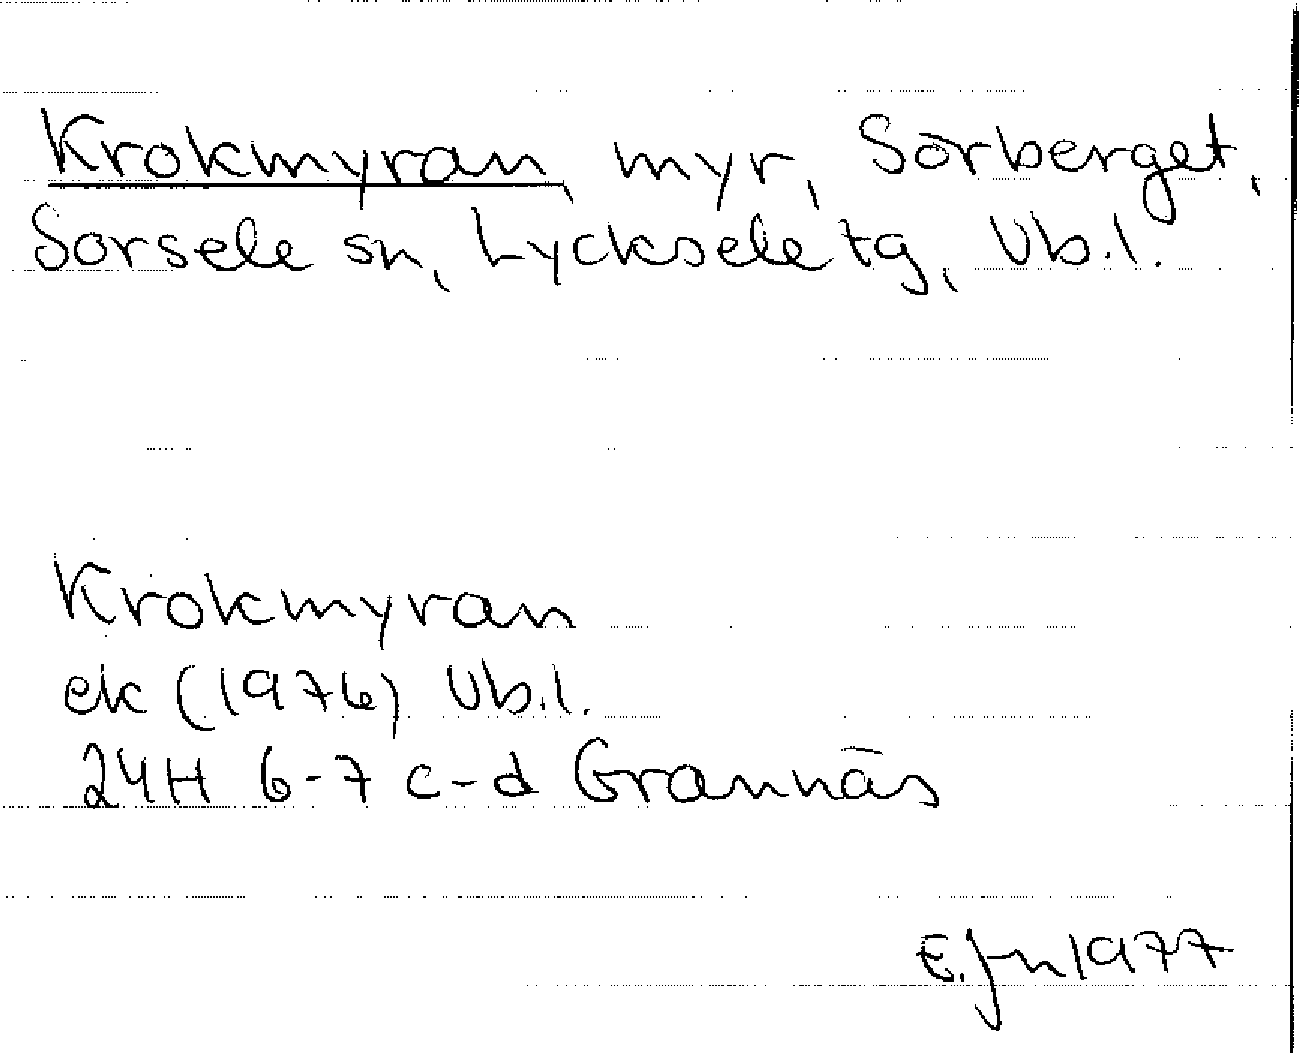 Krokmyran, myr, Sörberget,
Sorsele sn, Lycksele tg, Vb.l.
Krokmyran
ek (1976) Vb.l.
24H 6-7 c-d Grannäs
E.Jn 1977